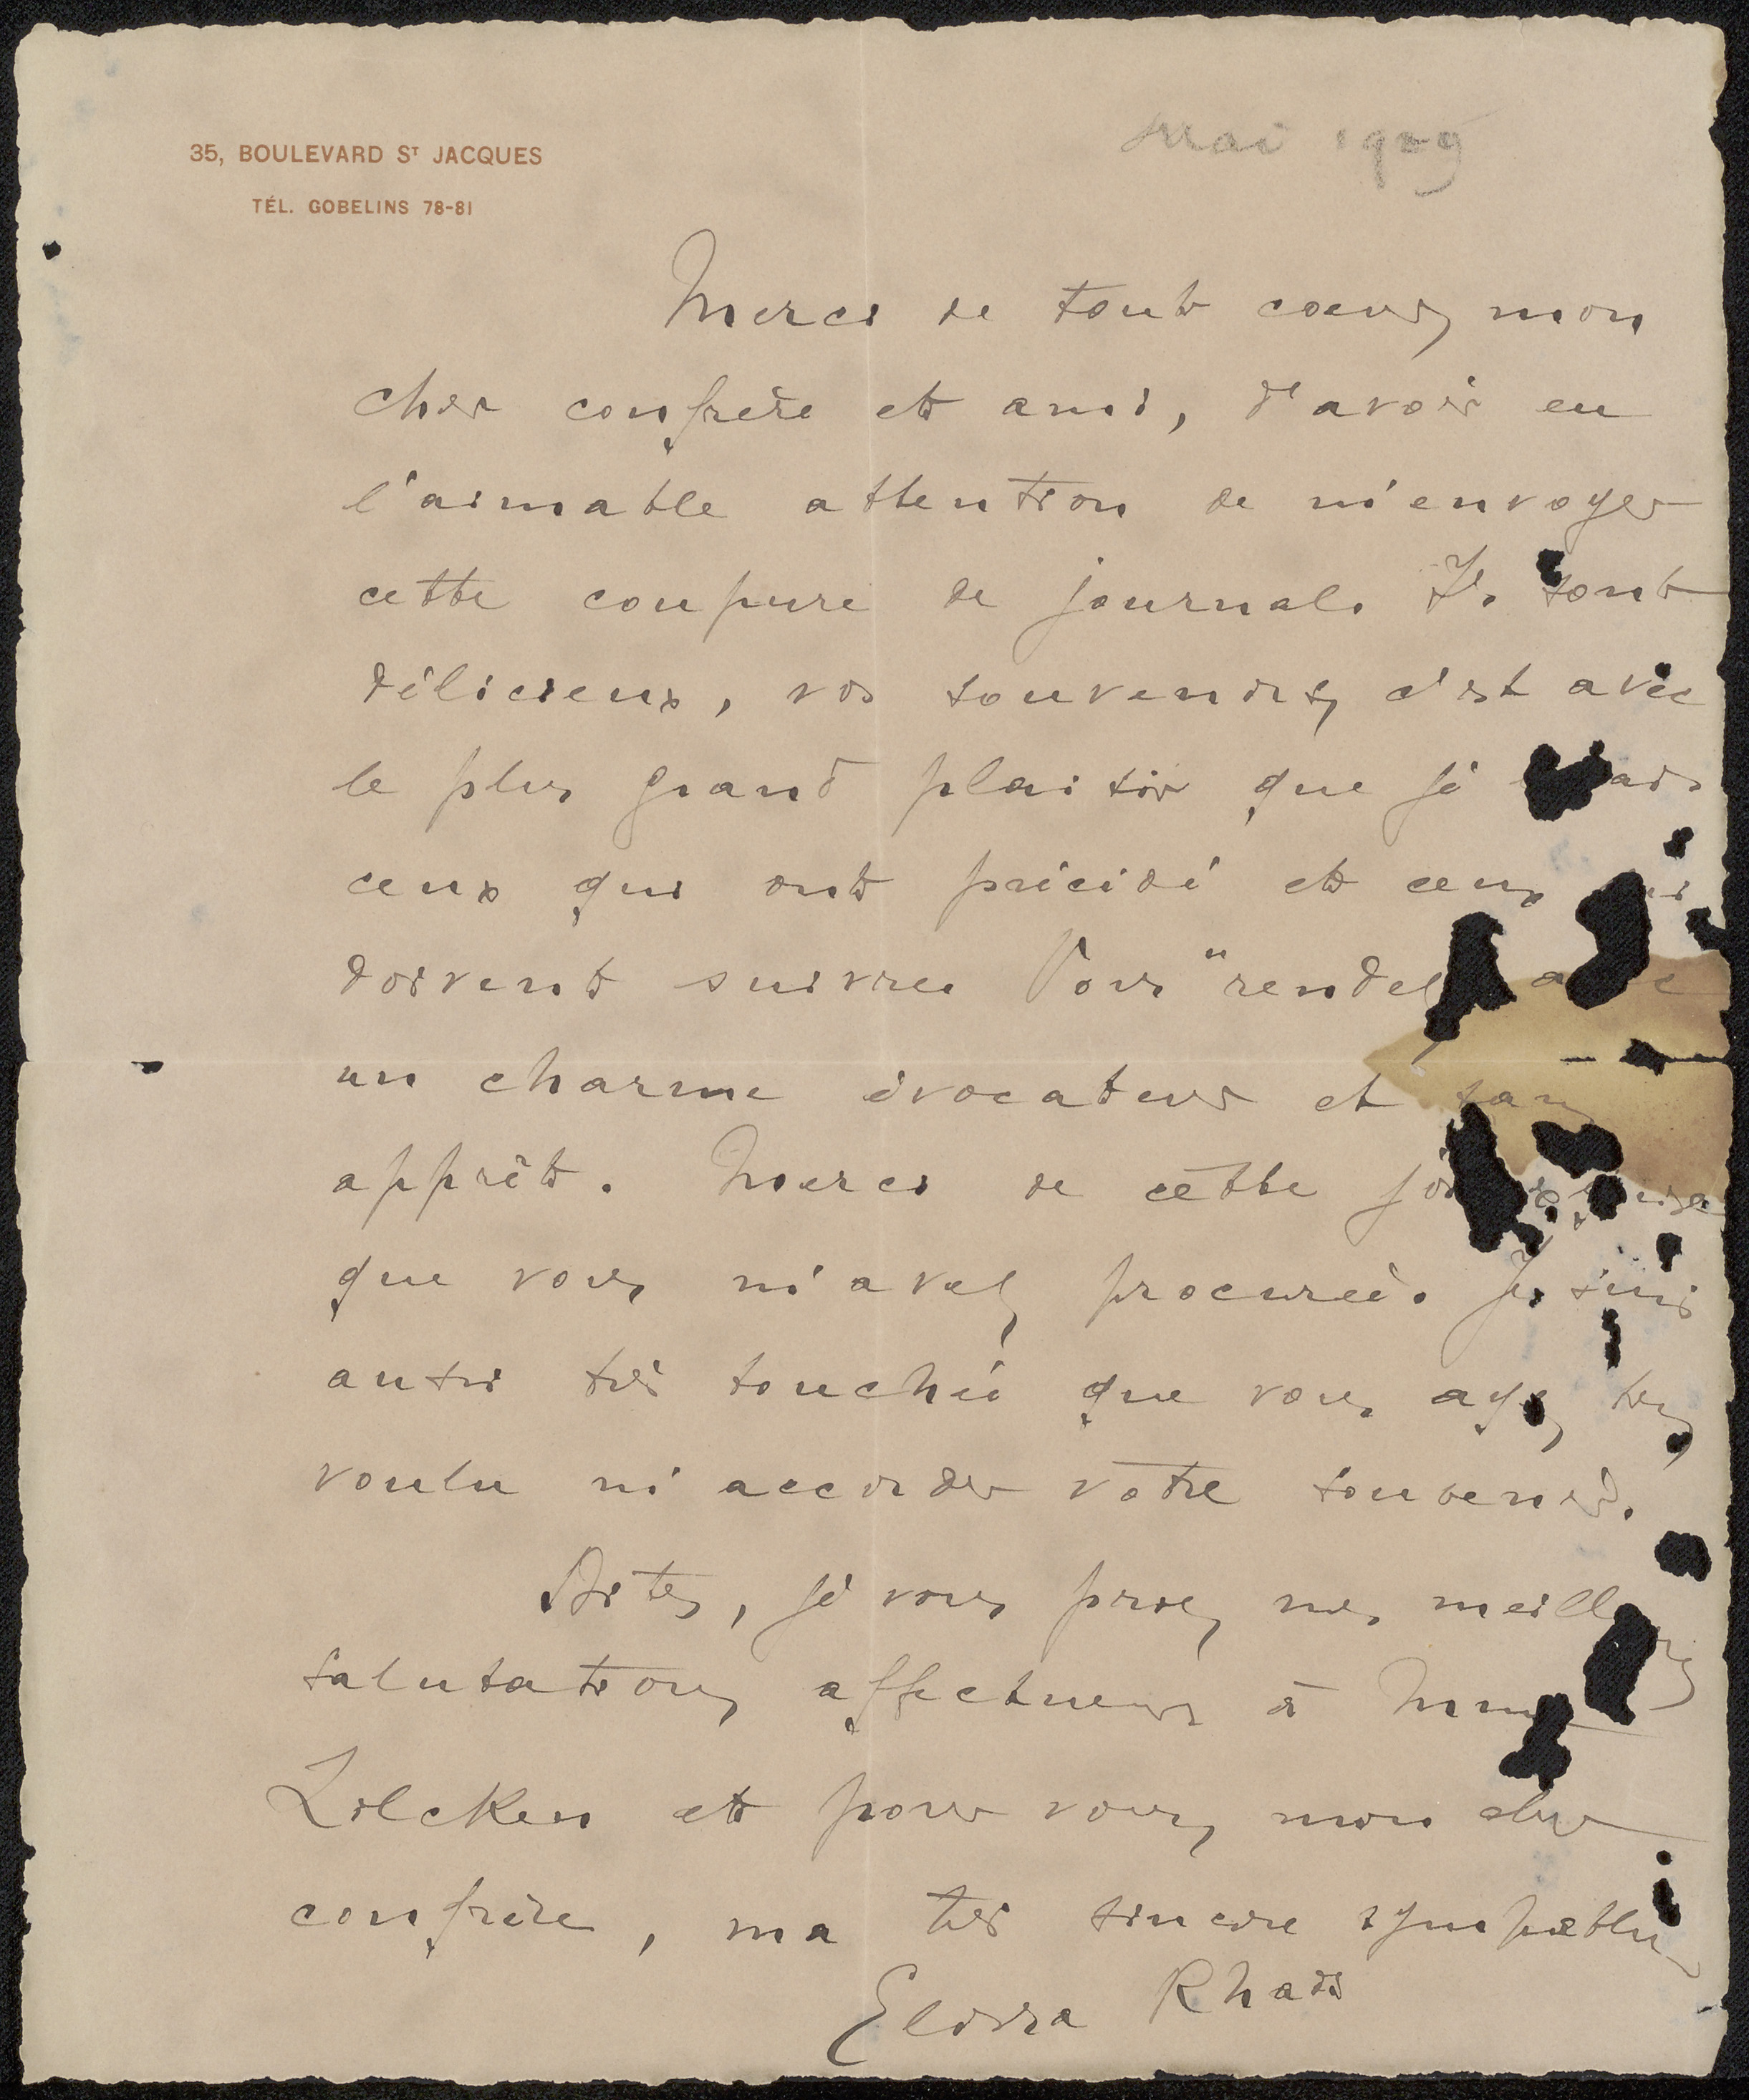 35, BOULEVARD ST JACQUES
TÉL. GOBELINS 78-81
Mai 1929
Merci de tout coeur, mon
cher confrère et ami, d'avoir eu
l'aimable attention de m'envoyer
cette coupure de journal. Ils sont
délicieux, vos souvenirs, c'est avec
le plus grand plaisir que je
ceux qui ont précédé et ceux qui
doivent suivre. Vous "rendez avec
un charme évocateur et sans
apprêt. Merci de cette joie exquise
que vous m'avez procurée. Je suis
aussi très touchée que vous ayez bien
voulu m'accorder votre souvenir.
Dites, je vous prie, mes meilleures
salutations affectueuses à Mme
Zilcken et pour vous, mon cher
confrère, ma très sincère sympathie
Elissa Rhaïs